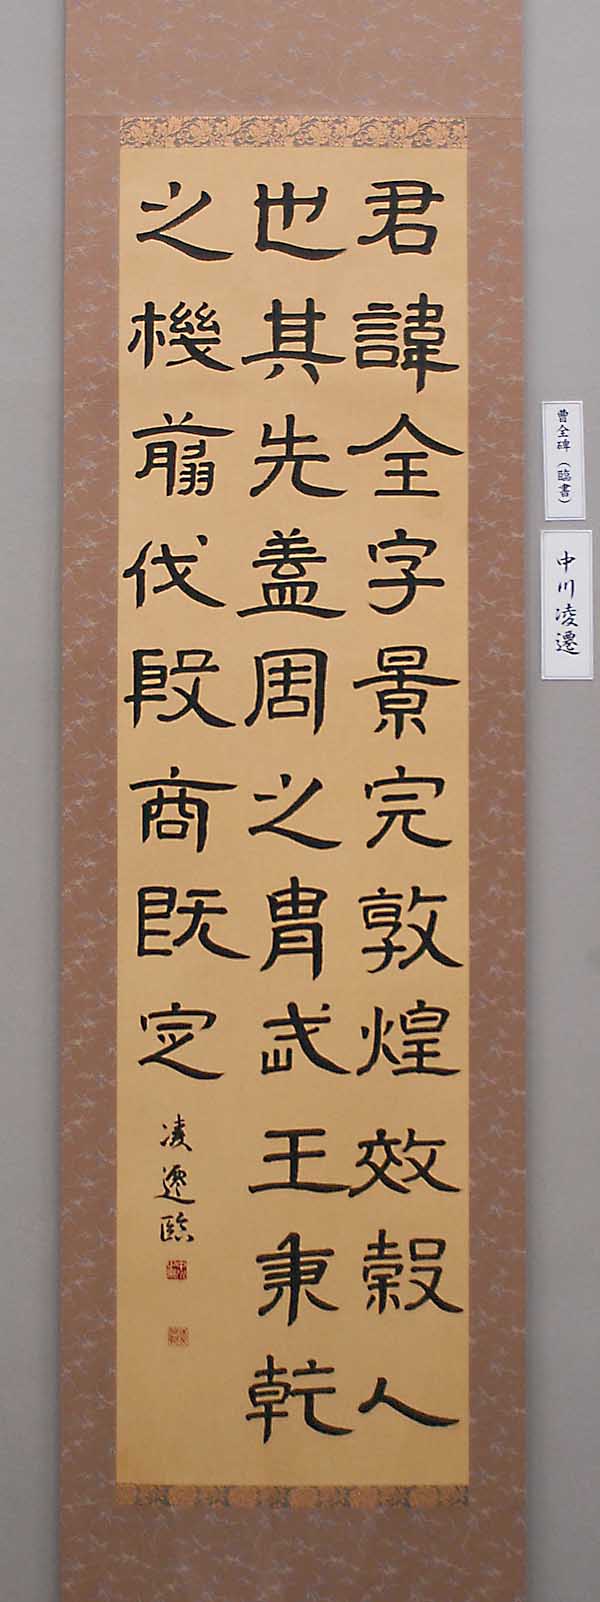 君諱全字景完敦煌效穀人
也其先蓋周之冑武王秉乾
之機翦伐殷商既定
凌遷臨
曹全碑（臨書）
中川凌遷